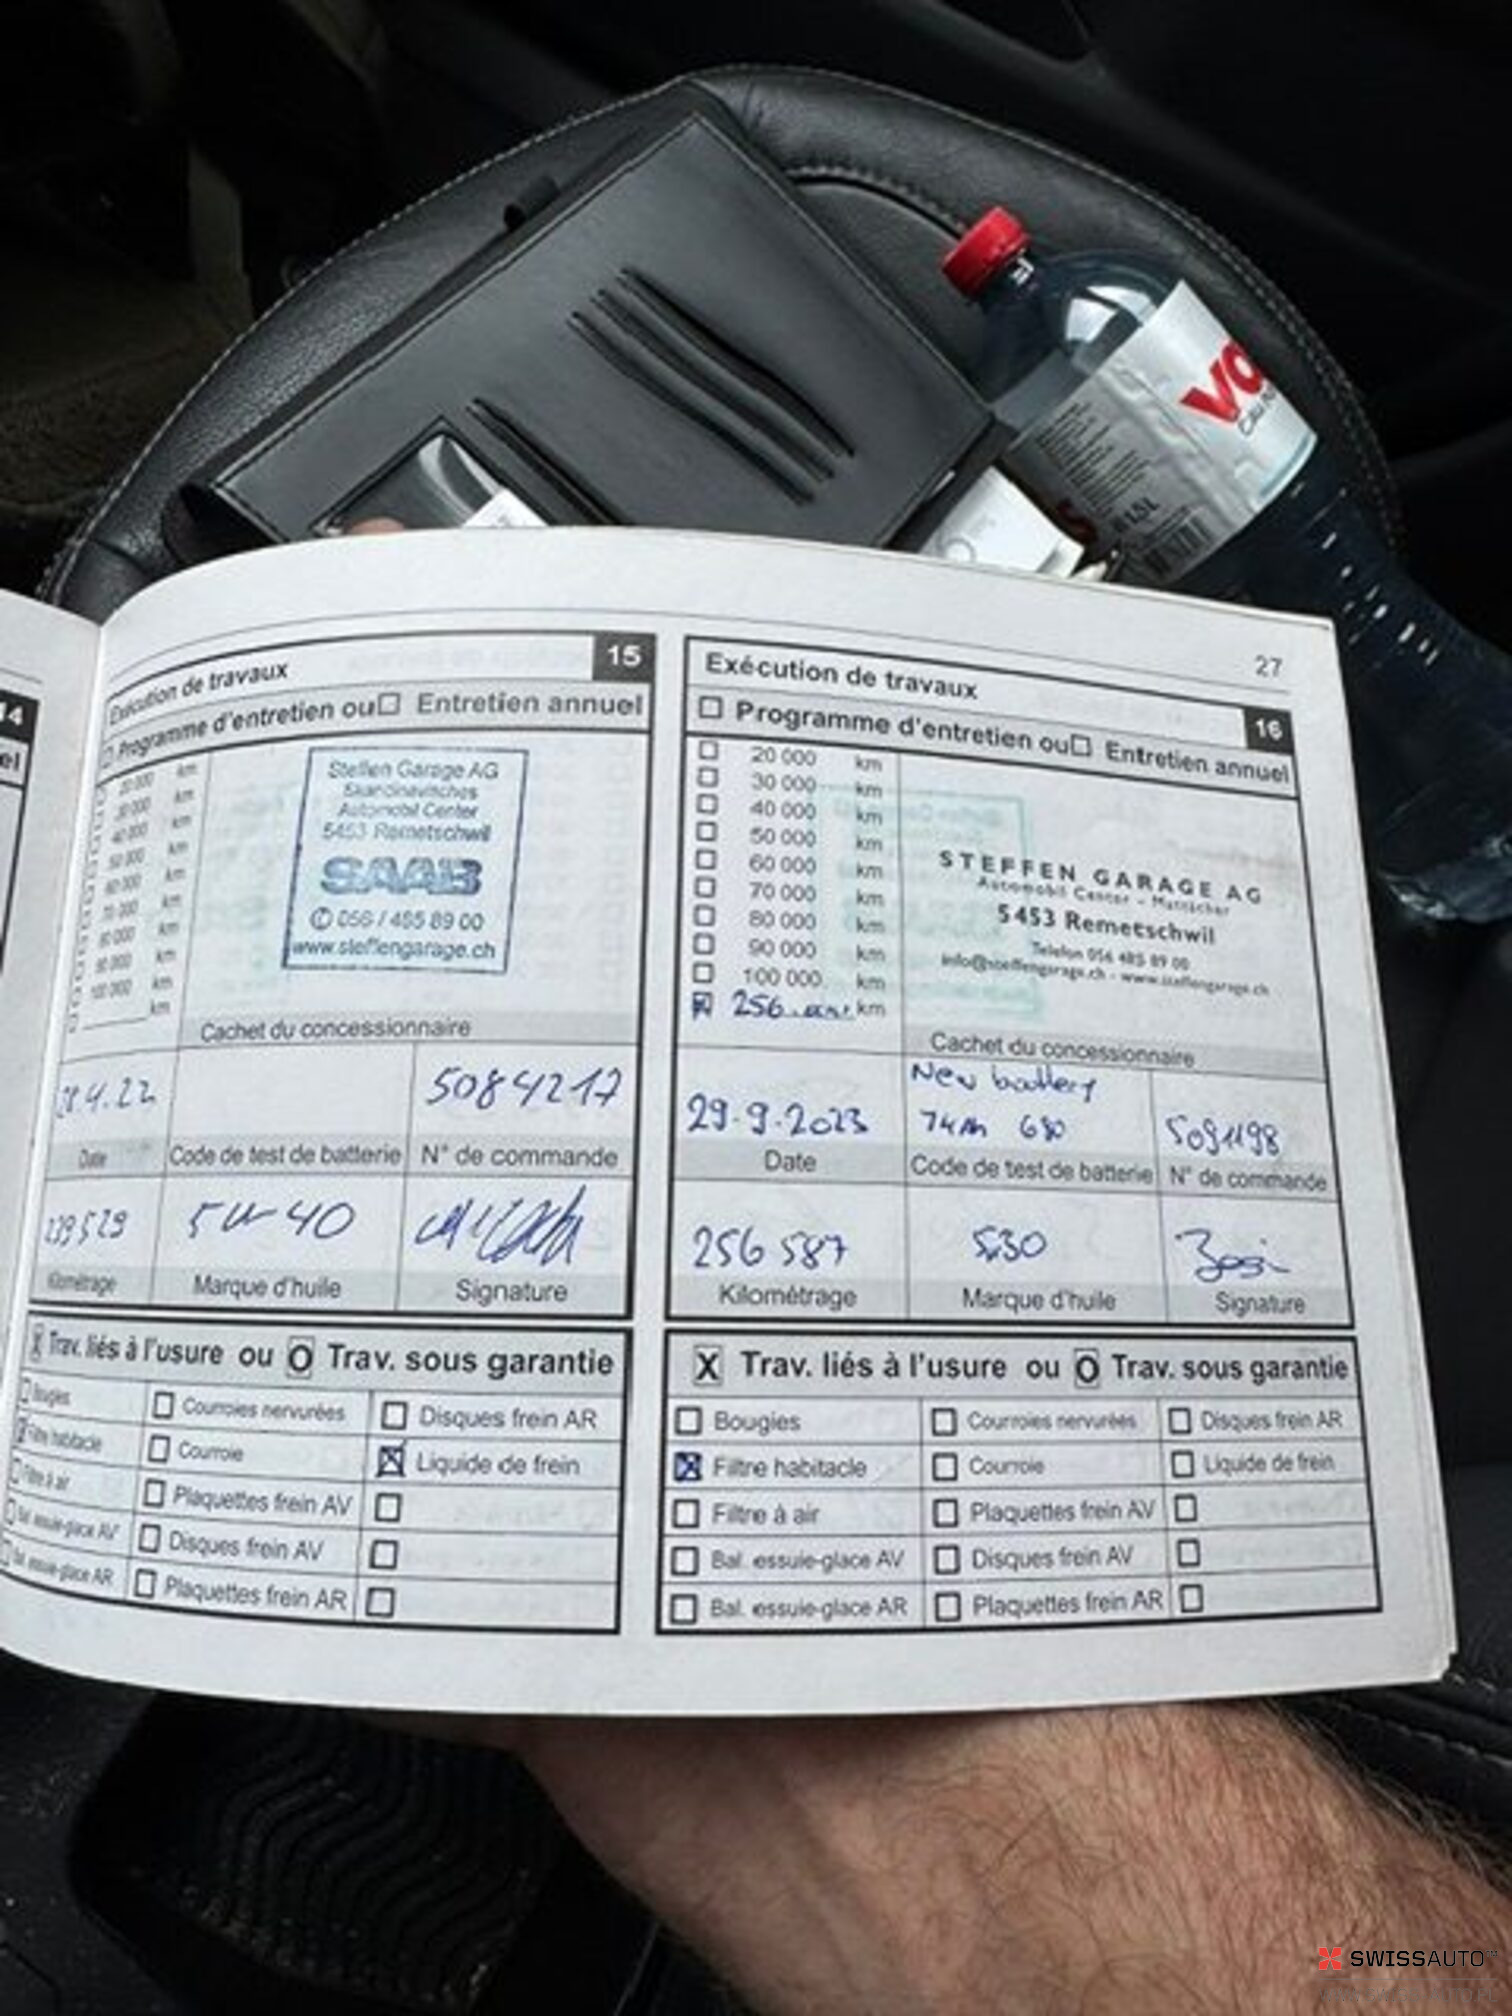 VO
1,5L
14
el
Exécution de travaux 15
Programme d'entretien ou Entretien annuel
20 000 km
30 000 km
40 000 km
50 000 km
60 000 km
70 000 km
80 000 km
90 000 km
100 000 km
km
Steffen Garage AG
Skandinavisches
Automobil Center
5453 Remetschwil
SAAB
✆ 056 / 485 89 00
www.steffengarage.ch
Cachet du concessionnaire
4.22 5084217
Date Code de test de batterie N° de commande
239529 5W-40
Kilométrage Marque d'huile Signature
X Trav. liés à l'usure ou O Trav. sous garantie
Bougies Courroies nervurées Disques frein AR
Filtre habitacle Courroie Liquide de frein
Filtre à air Plaquettes frein AV
Bal. essuie-glace AV Disques frein AV
Bal. essuie-glace AR Plaquettes frein AR
27
Exécution de travaux 16
Programme d'entretien ou Entretien annuel
20 000 km
30 000 km
40 000 km
50 000 km
60 000 km
70 000 km
80 000 km
90 000 km
100 000 km
256 km
STEFFEN GARAGE AG
Automobil Center
5453 Remetschwil
Telefon 056 485 89 00
info@steffengarage.ch - www.steffengarage.ch
Cachet du concessionnaire
New battery
29.9.2023 74Ah 680 5091198
Date Code de test de batterie N° de commande
256 587 530
Kilométrage Marque d'huile Signature
X Trav. liés à l'usure ou O Trav. sous garantie
Bougies Courroies nervurées Disques frein AR
Filtre habitacle Courroie Liquide de frein
Filtre à air Plaquettes frein AV
Bal. essuie-glace AV Disques frein AV
Bal. essuie-glace AR Plaquettes frein AR
SWISSAUTO